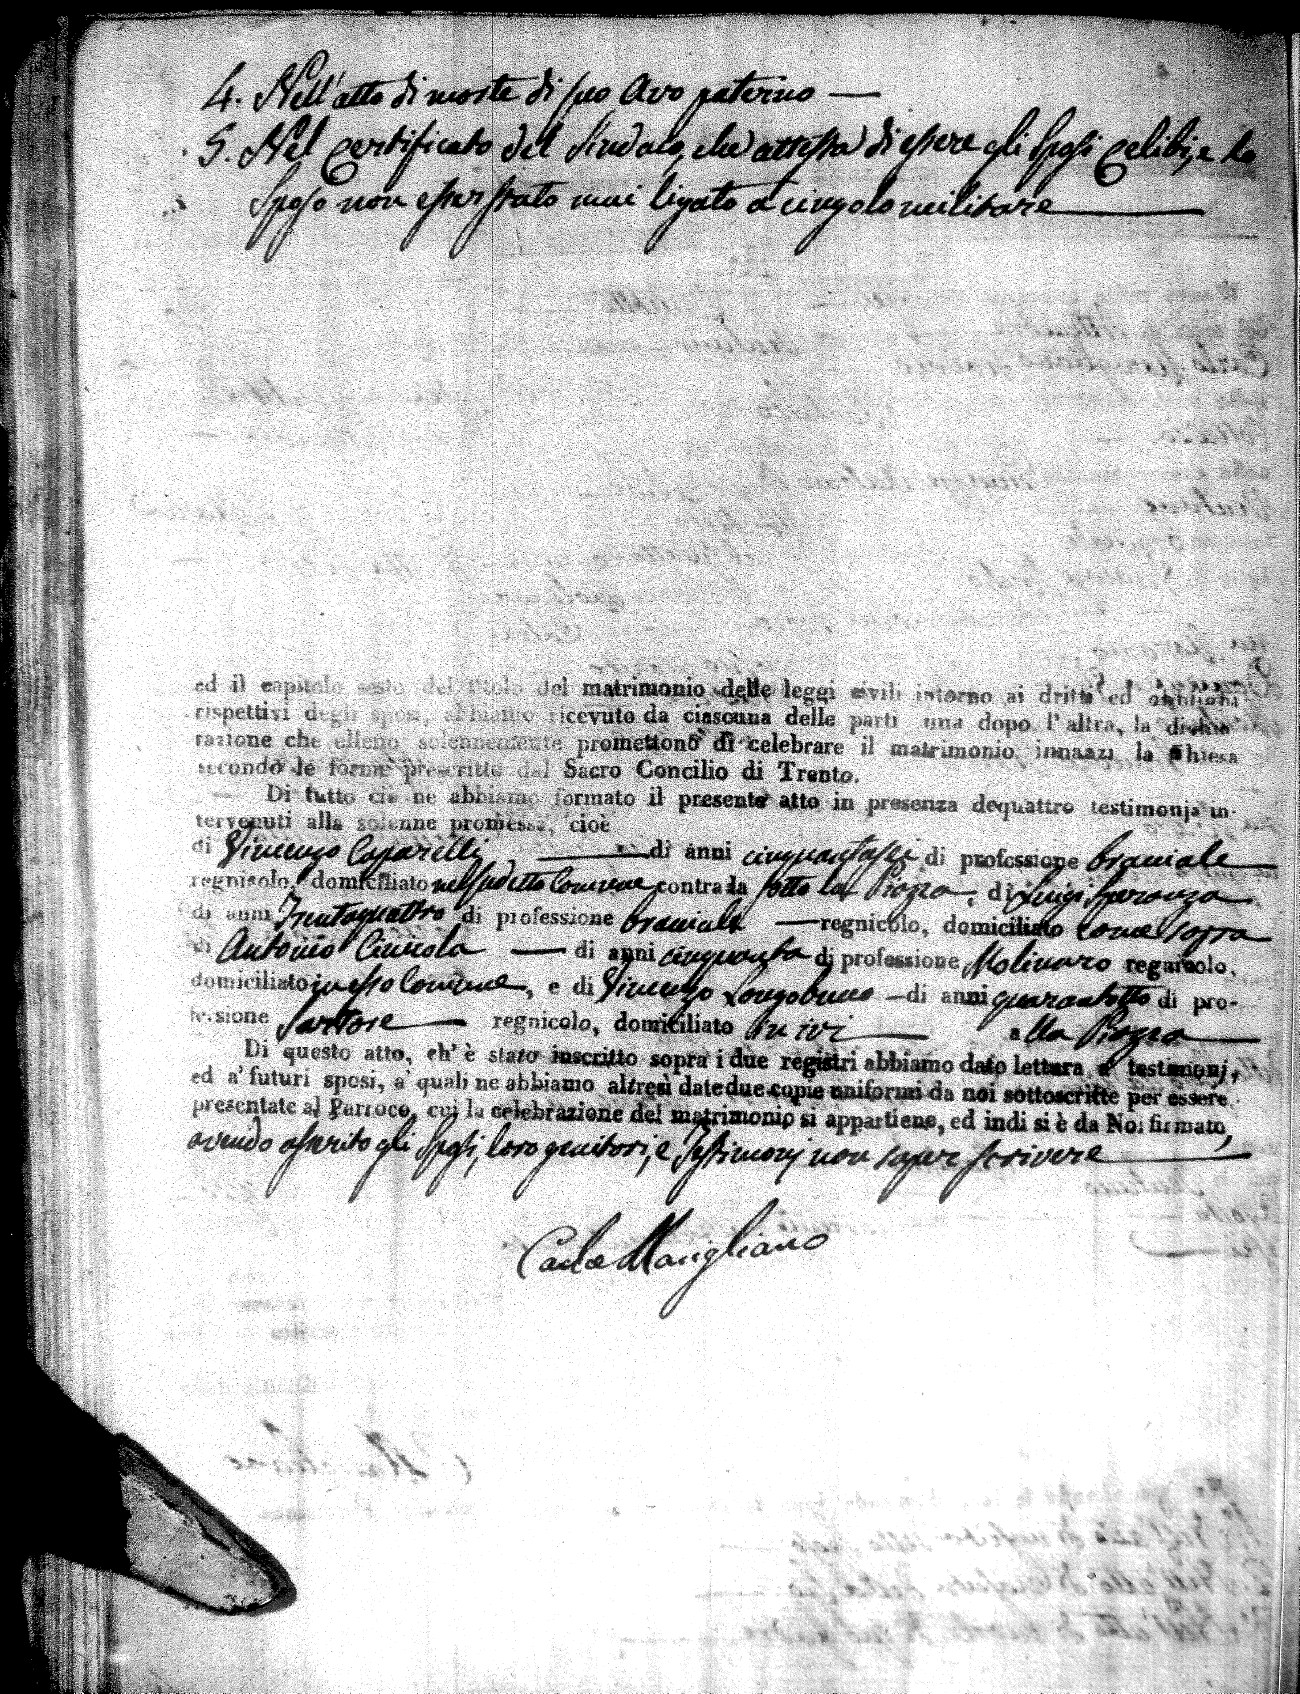 4. Nell'atto di morte di suo Avo paterno —
5. Nel Certificato del Sindaco, che attesta di essere gli Sposi celibi, e lo
Sposo non esser stato mai ligato a cingolo militare —
ed il capitolo sesto del titolo del matrimonio delle leggi civili intorno ai dritti ed obblighi
rispettivi degli sposi, abbiamo ricevuto da ciascuna delle parti una dopo l'altra, la dichia
razione che elleno solennemente promettono di celebrare il matrimonio innanzi la Chiesa
secondo le forme prescritte dal Sacro Concilio di Trento.
— Di tutto ciò ne abbiamo formato il presente atto in presenza dequattro testimonj in-
tervenuti alla solenne promessa, cioè
di Vincenzo Caparelli — di anni cinquantasei di professione bracciale
regnicolo, domiciliato nel sudetto Comune contrada sotto la Piazza, di Luigi Speranza
di anni Trentaquattro di professione bracciale — regnicolo, domiciliato come sopra
di Antonio — di anni cinquanta di professione Molinaro regnicolo,
domiciliato in esso Comune, e di Vincenzo Longobucco — di anni quarantotto di pro-
fessione Sartore — regnicolo, domiciliato ivi — alla Piazza —
Di questo atto, ch' è stato inscritto sopra i due registri abbiamo dato lettura a' testimonj,
ed a' futuri sposi, a' quali ne abbiamo altresì date due copie uniformi da noi sottoscritte per essere
presentate al Parroco, cui la celebrazione del matrimonio si appartiene, ed indi si è da Noi firmato,
avendo asserito gli Sposi, loro genitori, e Testimonj non saper scrivere —
Carlo Marigliano